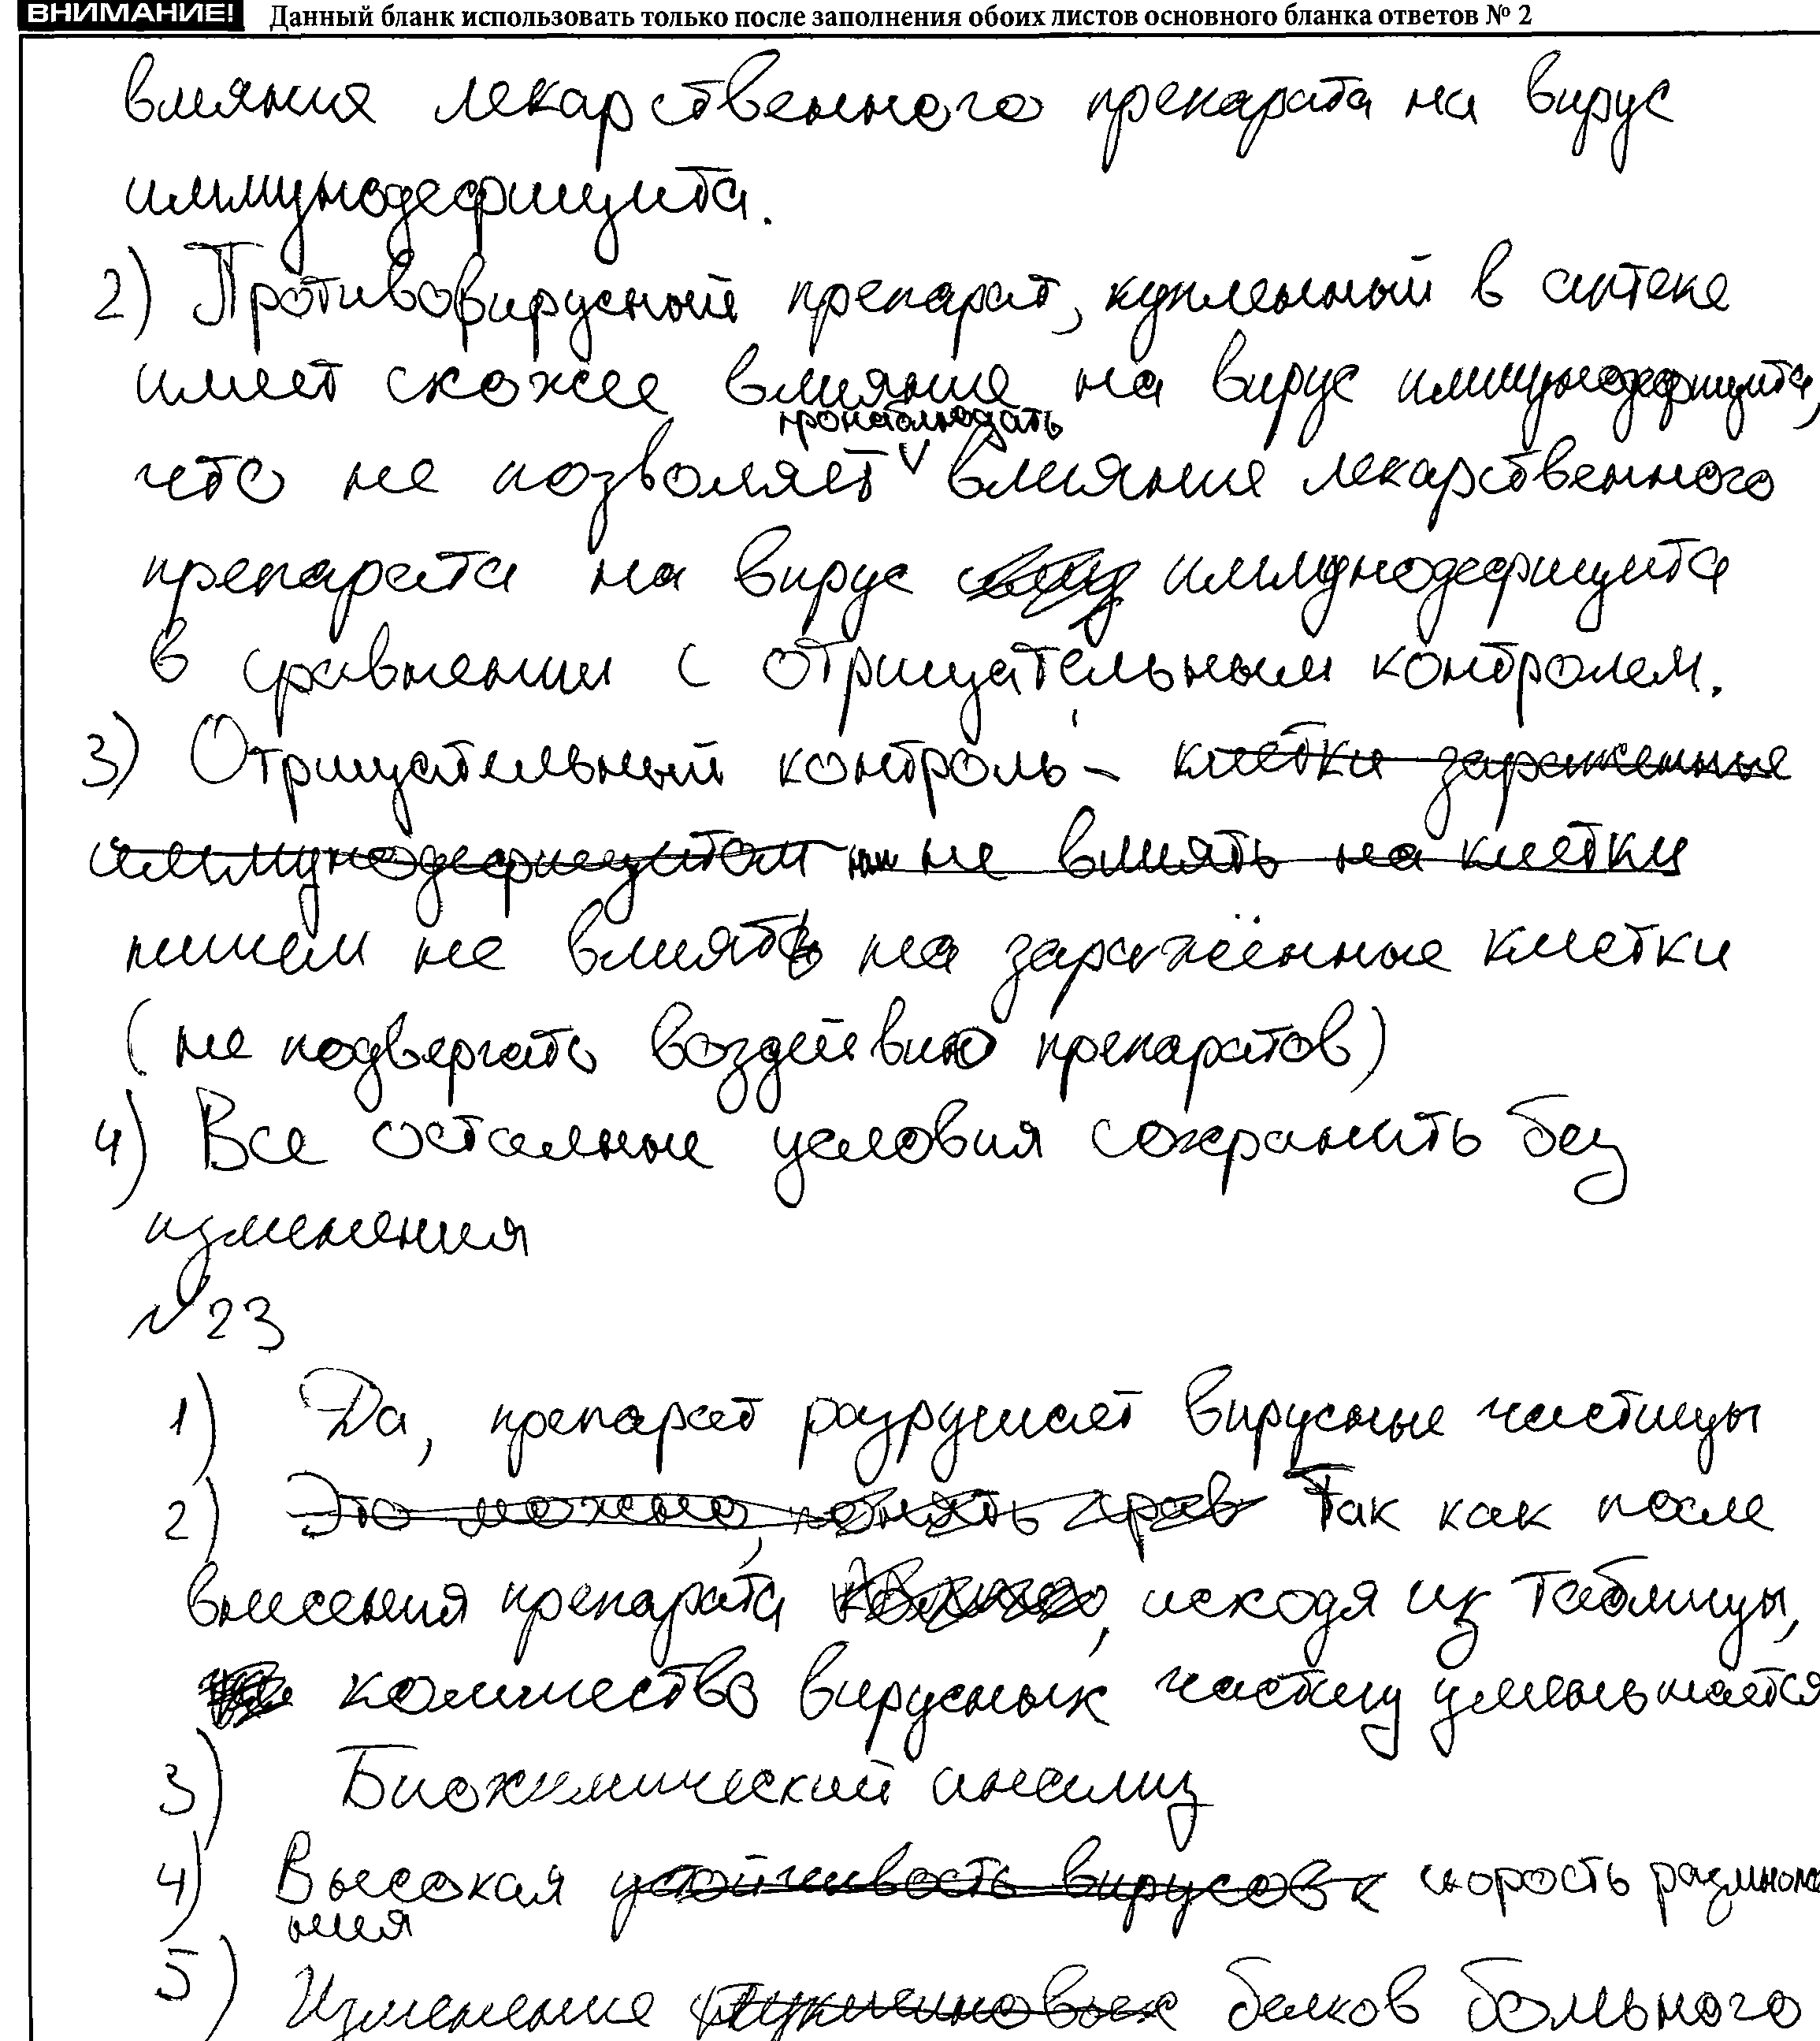 ВНИМАНИЕ! Данный бланк использовать только после заполнения обоих листов основного бланка ответов № 2
влияния лекарственного препарата на вирус
иммунодефицита.
2) Противовирусный препарат, купленный в аптеке
имеет схожее влияние на вирус иммунодефицита,
пронаблюдать
что не позволяет влияние лекарственного
препарата на вирус иммунодефицита
в сравнении с отрицательным контролем.
3) Отрицательный контроль - клетки зараженные
иммунодефицитом не влиять на клетки
ничем не влиять на заражённые клетки
(не подвергать воздействию препаратов)
4) Все остальные условия сохранить без
изменения
№23
1) Да, препарат разрушает вирусные частицы
2) Это можно понять срав Так как после
внесения препарата, исходя из таблицы,
количество вирусных частиц уменьшается
3) Биохимический анализ
4) Высокая устойчивость вирусов к скорость размноже
ния
5) Изменение белков больного